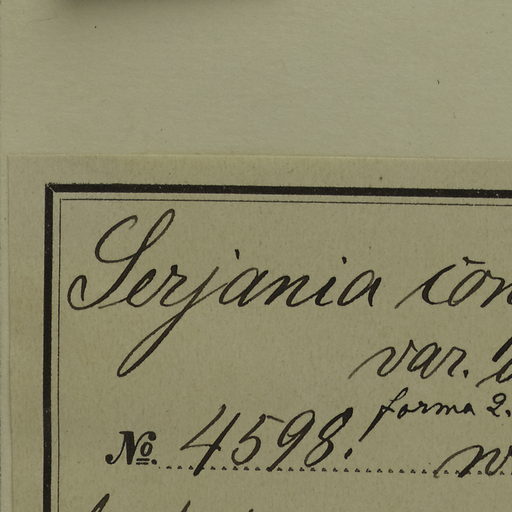 Serjania
var.
forma 2.
No. 4598.